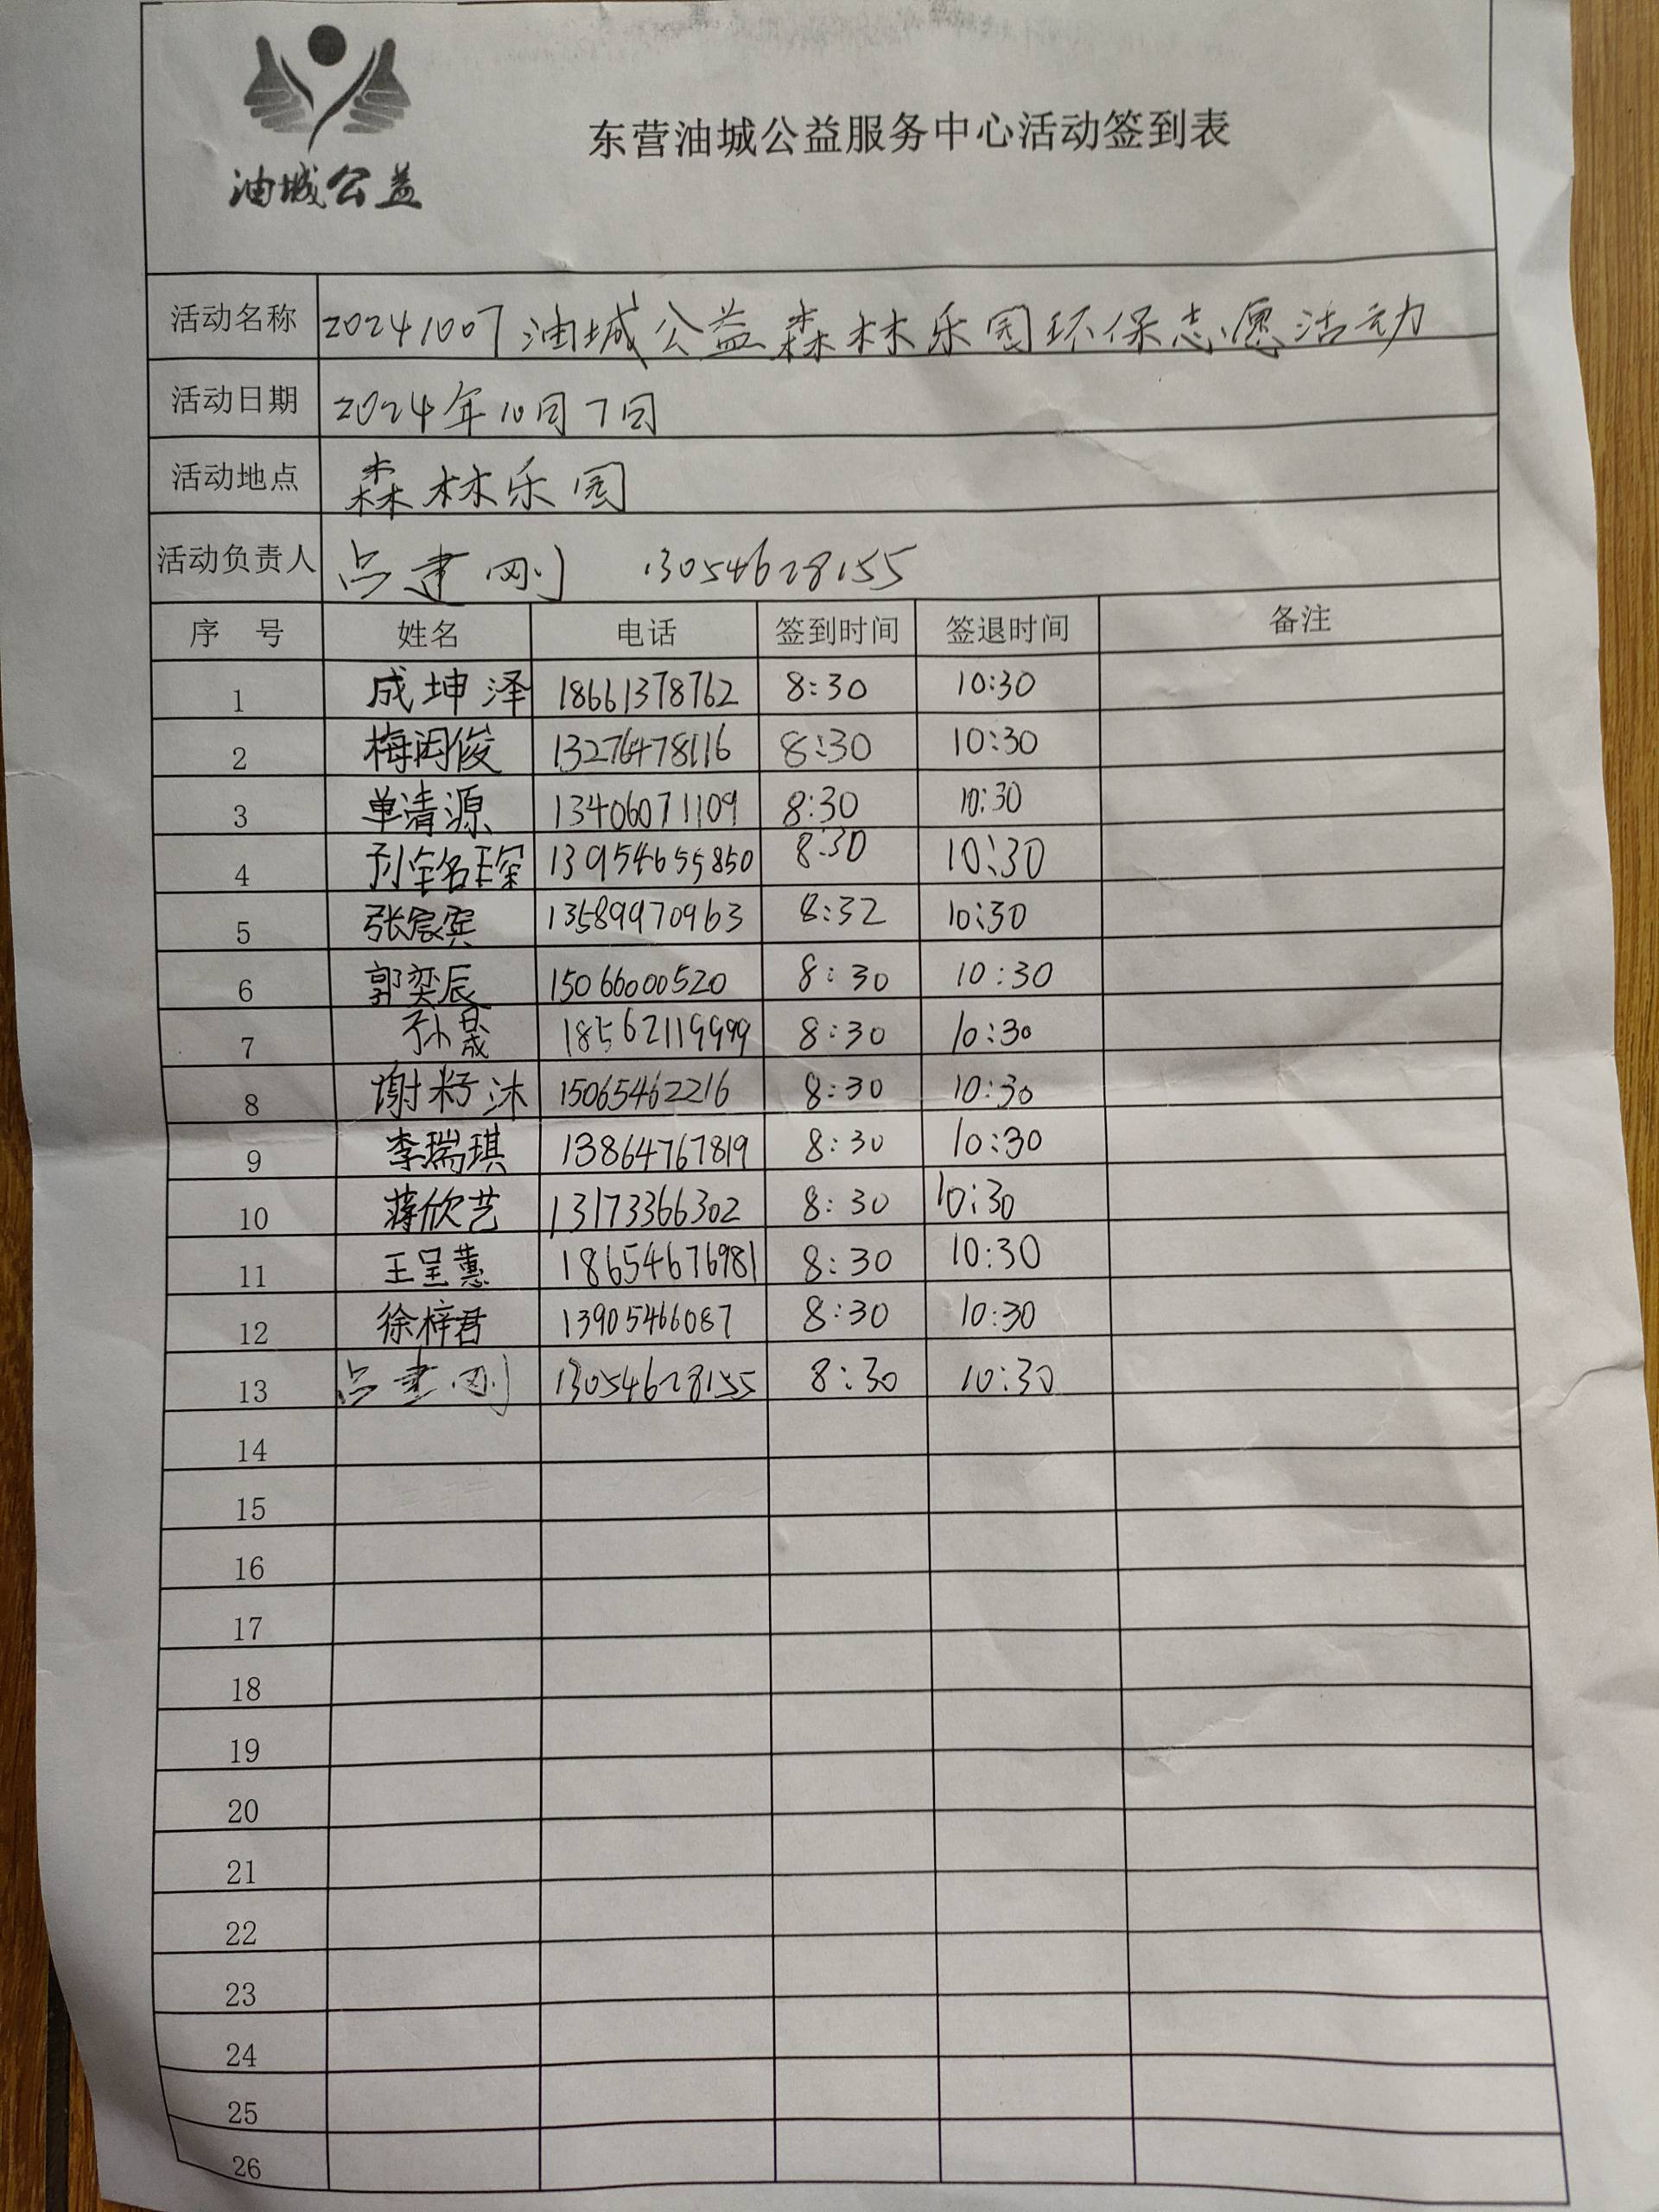 油城公益
东营油城公益服务中心活动签到表
活动名称 20241007油城公益森林乐园环保志愿活动
活动日期 2024年10月7日
活动地点 森林乐园
活动负责人 建刚 13054628155
序 号 姓名 电话 签到时间 签退时间 备注
1 成坤泽 18661378762 8:30 10:30
2 梅闳俊 13276478116 8:30 10:30
3 单清源 13406071109 8:30 10:30
4 13954655850 8:30 10:30
5 张宸宾 13589970963 8:32 10:30
6 郭奕辰 15066000520 8:30 10:30
7 孙晟 18562119999 8:30 10:30
8 谢籽沐 15065462216 8:30 10:30
9 李瑞琪 13864767819 8:30 10:30
10 蒋欣艺 13173366302 8:30 10:30
11 王呈蕙 18654676981 8:30 10:30
12 徐梓君 13905466087 8:30 10:30
13 建刚 13054628155 8:30 10:30
14
15
16
17
18
19
20
21
22
23
24
25
26